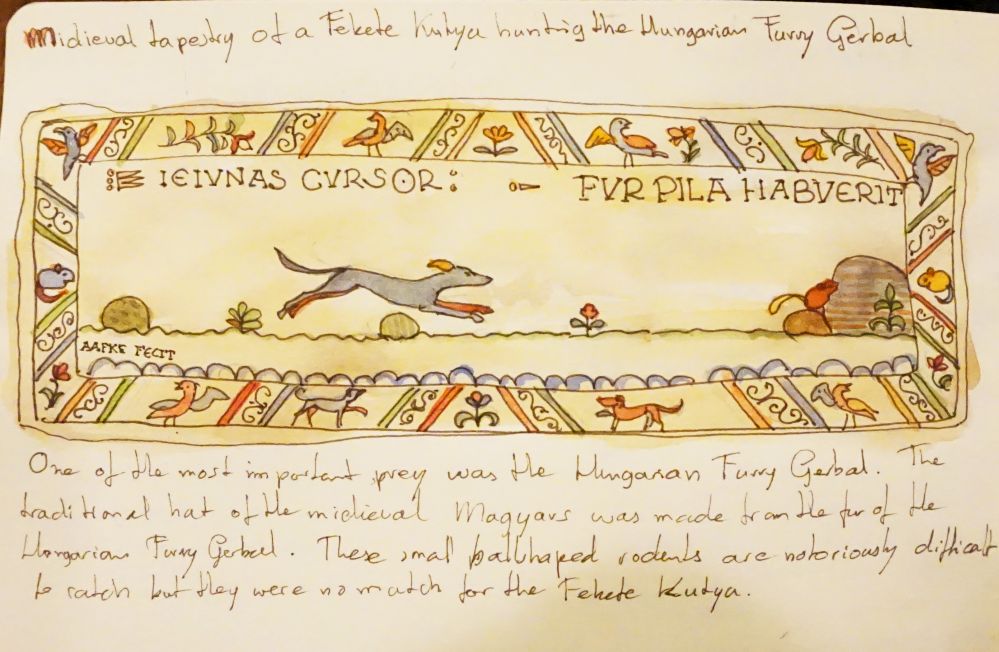 Midieval tapestry of a Fekete Kutya hunting the Hungarian Furry Gerbal
IEIVNAS CVRSOR: FVR PILA HABVERIT
AAFKE FECIT
One of the most important prey was the Hungarian Furry Gerbal. The
traditional hat of the midieval Magyars was made from the fur of the
Hungarian Furry Gerbal. These smal ballshaped rodents are notoriously difficalt
to catch but they were no match for the Fekete Kutya.